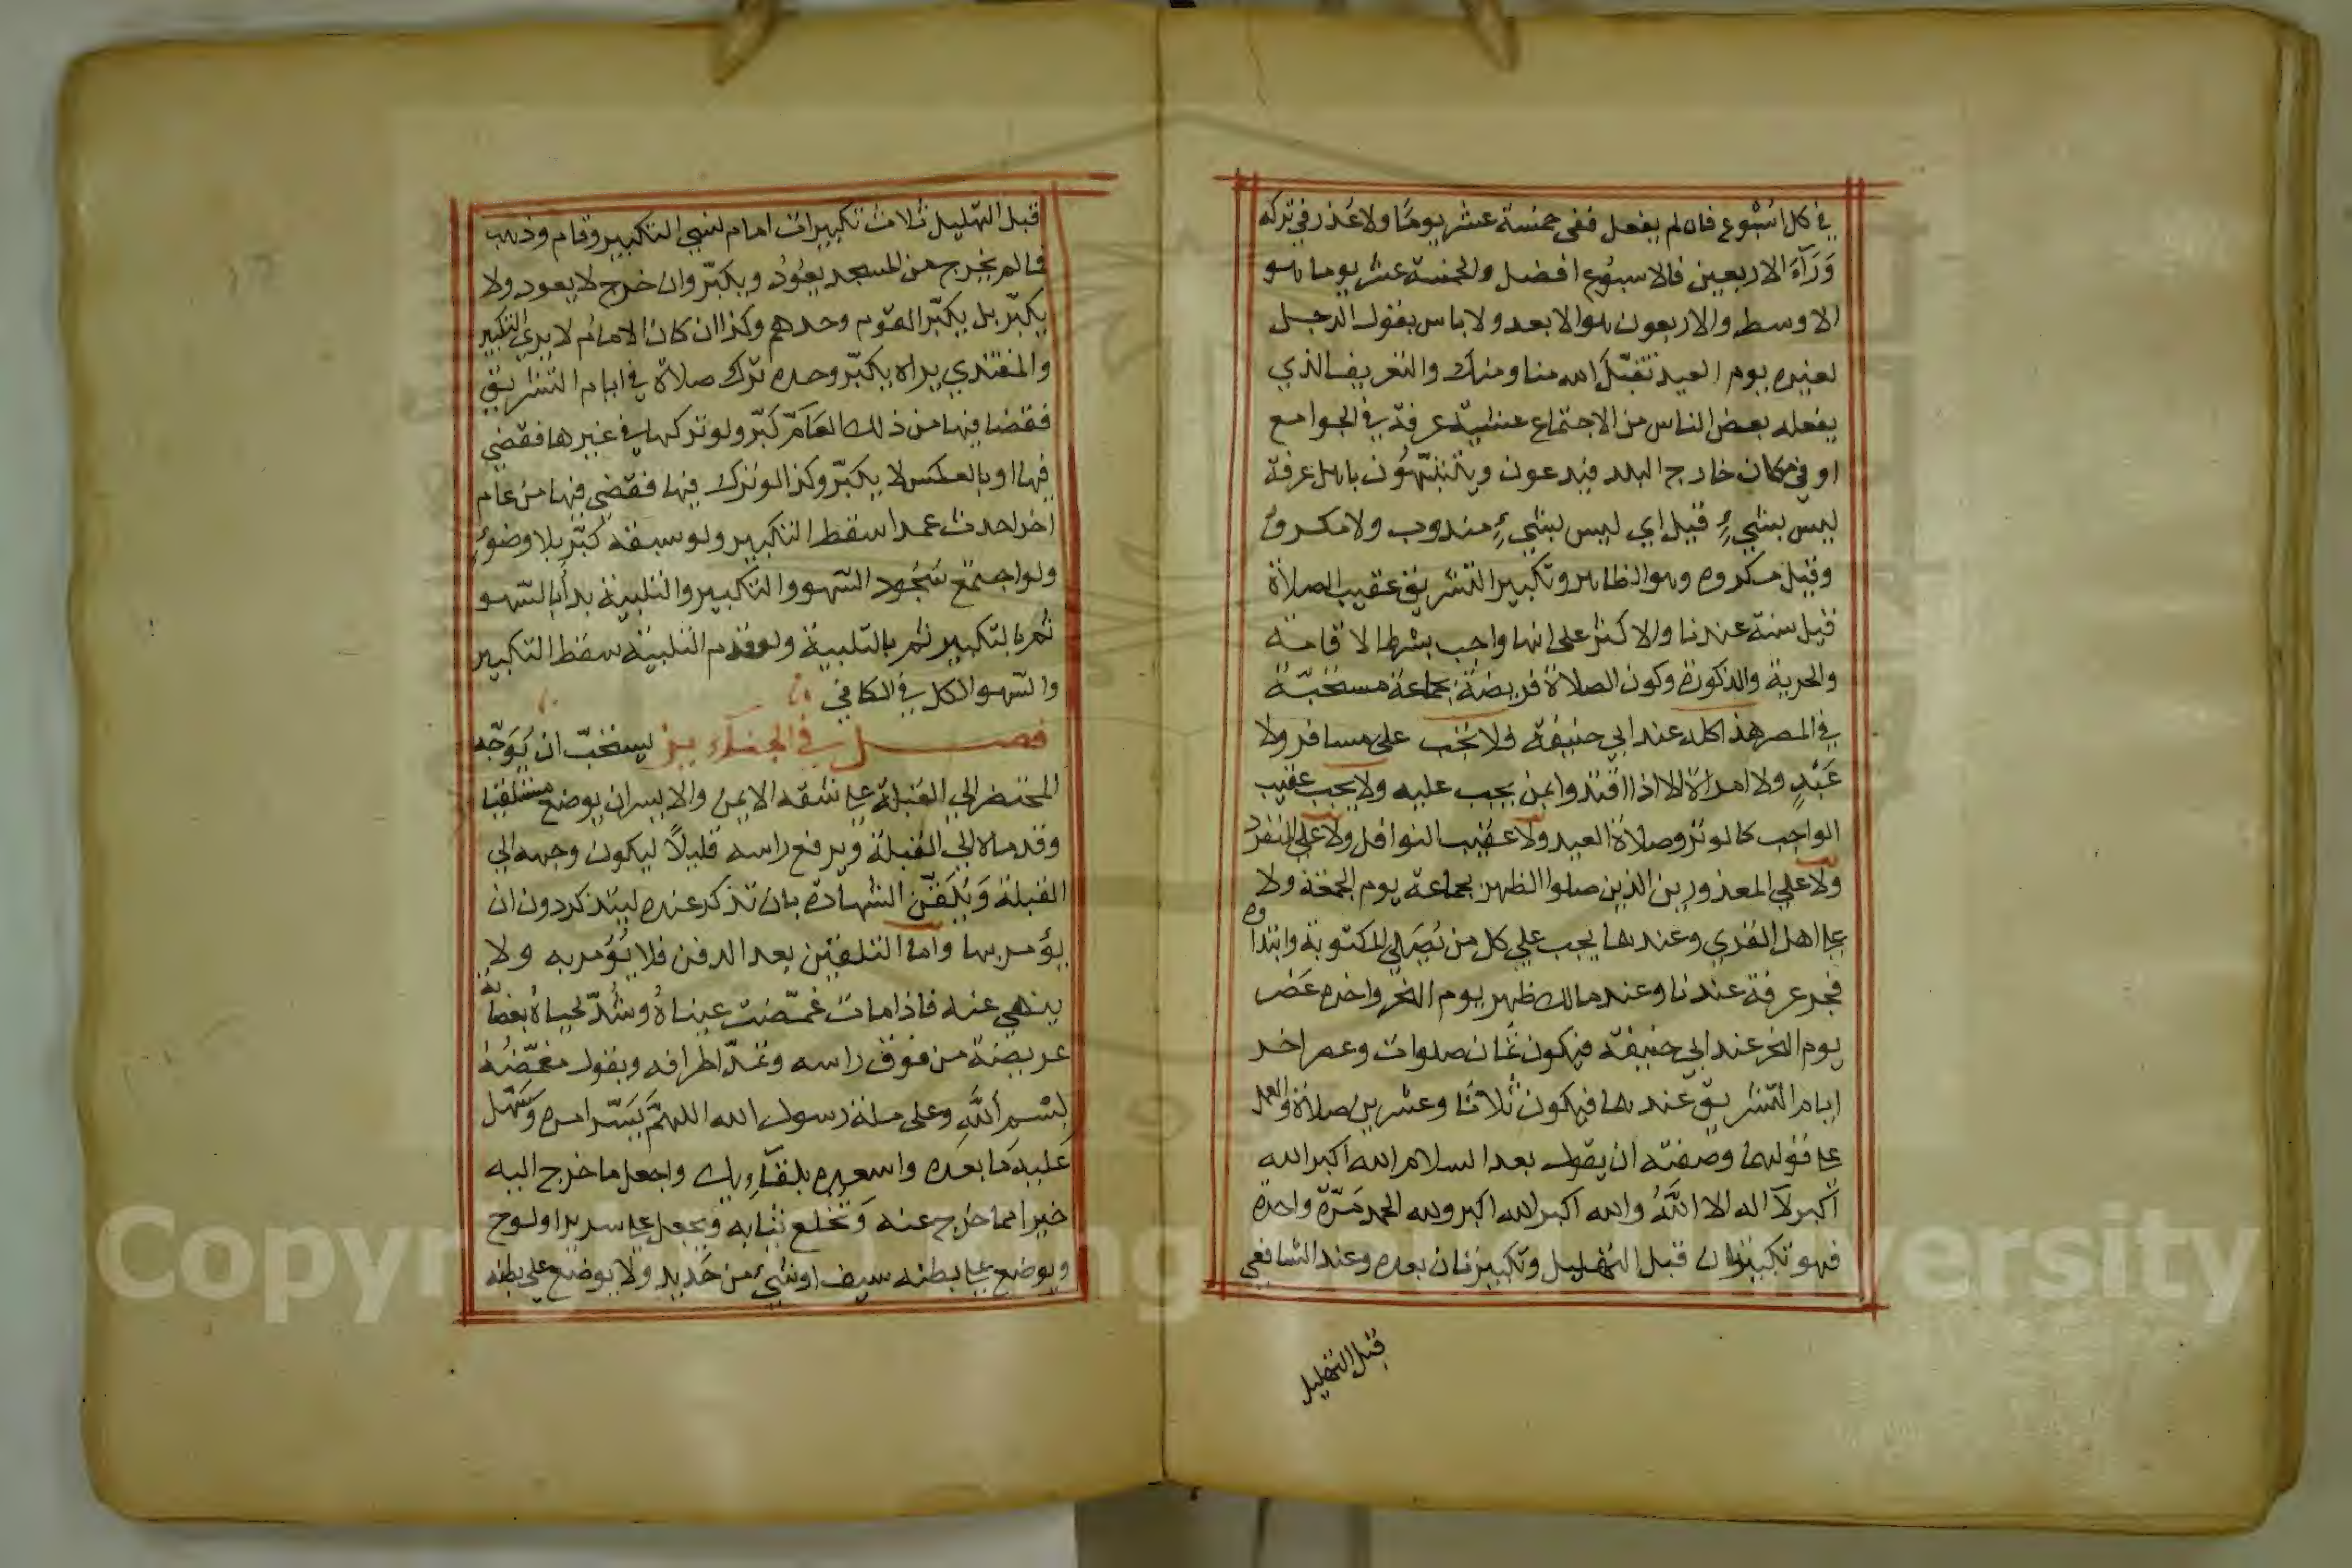 في كل اسْبُوع فان لم يفعل ففى خمسة عشر يومًا ولا عُذر في تركه
وَرَآءَ الاربعين فالاسبوُع افضل والخمسة عشر يوما هو
الاوسط والاربعون هو الابعد ولا باس بقول الرجل
لغيره يوم العيد تقبّل الله منا ومنك والتعريف الذي
يفعله بعض الناس من الاجتماع عشيّة عرفة في الجوامع
او في مكان خارج البلد فيدعون ويتشبّهوُن باهل عرفة
ليس بشيءٍ قيل اي ليس بشيءٍ مندوب ولا مكروه
وقيل مكروه وهو الظاهر وتكبير التشريق عقيب الصلاة
قيل سنة عندنا والاكثر على انها واجب بشرط الاقامة
والحرية والذكورة وكون الصلاة فريضة بجماعة مستحبّة
في المصر هذا كله عند ابي حنيفة فلا يجب على مسافر ولا
عَبْدٍ ولا امراة الا اذا اقتدوا بمن يجب عليه ولا يجب عقيب
الواجب كالوتر وصلاة العيد ولا عقيب النوافل ولا علي المنفرد
ولا علي المعذورين الذين صلوا الظهر بجماعة يوم الجمعة ولا
علي اهل القري وعندهما يجب علي كل من يُصَلي المكتوبة وابتداوه
فجر عرفة عندنا وعند مالك ظهر يوم النحر واخره عَصْر
يوم النحر عند ابي حنيفة فيكون ثمان صلوات وعصر اخر
ايام التّشريق عندهما فيكون ثلاثا وعشرين صلاة والعمل
علي قولهما وصفته ان يقول بعد السلام الله اكبر الله
اكبر لآ اله الا اللَّهُ والله اكبر الله اكبر ولله الحمد مَرّة واحدة
فهو تكبيرتان قبل التهليل وتكبيرتان بعده وعند الشافعي
قبل التهليل
قبل التهليل ثلاث تكبيرات امام نسي التكبير وقام وذهب
فما لم يخرج من المسجد يعُودُ ويكبّر وان خرج لا يعود ولا
يكبّر بل يكبّر القوم وحدهم وكذا ان كان الامام لا يري التكبير
والمقتدي يراه يكبّر وحده ترك صلاة في ايام التشريق
فقضا فيها من ذلك العَام كَبّر ولو تركها في غيرها فقضي
فيها او بالعكس لا يكبّر وكذا لو ترك فيها فقضي فيها من عام
اخر احدث عمدا سقط التكبير ولو سبقه كبّر بلا وضوءٍ
ولو اجتمع سُجُود السّهو والتكبير والتلبية بدأ بالسّهو
ثم بالتكبير ثم بالتلبية ولو قدم التلبية سقط التكبير
والسّهو الكل في الكافي
فصل في الجنآئز يستحبّ ان يُوَجّه
المحتضر الي القبلة علي شقه الايمن والايسر ان يوضع مستلقيا
وقدماه الي القبلة ويرفع راسه قليلاً ليكون وجهه الي
القبلة وَيُلَقّن الشهادة بان تذكر عنده ليتذكر دون ان
يؤمر بها واما التلقين بعد الدفن فلا يُؤمر به ولا
ينهي عنه فاذا مات غمّضت عيناهُ وشُدّ لحياهُ بعصابة
عريضة من فوق راسه وتمدّ اطرافه ويقول مغمّضُهُ
بسْمِ اللَّهِ وعلى ملة رسول الله اللهمَّ يَسّر امره وَسَهّل
عَليهِ مَا بعَده واسعده بلقآءِ ربك واجعل ما خرج اليه
خيرا مما خرج عنه وَتخلع ثيابه ويجعل علي سرير او لوح
ويوضع علي بطنه سيف او شيءٌ من حَديد ولا يوضع علي بطنه
Copyright © King Saud University